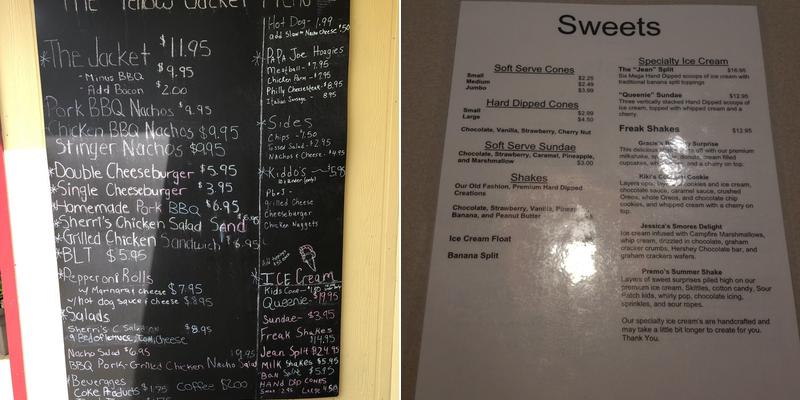 The Yellow Jacket Menu
*The Jacket $11.95
- Minus BBQ $9.95
- Add Bacon $2.00
Pork BBQ Nachos $9.95
Chicken BBQ Nachos $9.95
Stinger Nachos $9.95
*Double Cheeseburger $5.95
*Single Cheeseburger $3.95
*Homemade Pork BBQ $6.95
*Sherri's Chicken Salad Sand $6.95
*Grilled Chicken Sandwich $6.95
*BLT $5.95
*Pepperoni Rolls
w/ Marinara & cheese $7.95
w/ hot dog sauce & cheese $8.95
*Salads
Sherri's C. Salad on $8.95
a Bed of Lettuce, Tom, Cheese
Nacho Salad $6.95
BBQ Pork-Grilled Chicken Nacho Salad 9.95
*Beverages
Coke Products $1.75 Coffee $2.00
Hot Dog - 1.99
add Slaw Nacho Cheese .50
*PAPA Joe Hoagies
Meatball - $7.95
Chicken Parm - $7.95
Philly Cheesesteak $8.95
Italian Sausage - 8.95
*Sides
Chips - 1.50
Tossed Salad - $2.95
Nachos & Cheese - $4.95
*Kiddo's ~ $5.95
Pb & J -
grilled Cheese
Cheeseburger
Chicken Nuggets
*ICE Cream
Kids Cone
Queenie - $19.95
Sundae - $3.95
Freak Shakes
14.95
Jean Split $24.95
Milk Shakes $5.95
Ban Split $5.95
HAND DIP CONES
Small 2.95 Large 4.50
Sweets
Soft Serve Cones
Small $2.25
Medium $2.49
Jumbo $3.99
Hard Dipped Cones
Small $2.99
Large $4.50
Chocolate, Vanilla, Strawberry, Cherry Nut
Soft Serve Sundae
Chocolate, Strawberry, Caramel, Pineapple,
and Marshmallow $3.00
Shakes
Our Old Fashion, Premium Hard Dipped
Creations
Chocolate, Strawberry, Vanilla, Pineapple
Banana, and Peanut Butter
Ice Cream Float
Banana Split
Specialty Ice Cream
The "Jean" Split $16.95
Six Mega Hand Dipped scoops of ice cream with
traditional banana split toppings
"Queenie" Sundae $12.95
Three vertically stacked Hand Dipped scoops of
ice cream, topped with whipped cream and a
cherry.
Freak Shakes $12.95
Gracie's Birthday Surprise
This delicious starts off with our premium
milkshake, sprinkles, donuts, cream filled
cupcakes, whip cream and a cherry on top.
Kiki's Cookie
Layers of cookies and ice cream,
chocolate sauce, caramel sauce, crushed
Oreos, whole Oreos, and Chocolate chip
cookies, and whipped cream with a cherry on
top.
Jessica's Smores Delight
Ice cream infused with Campfire Marshmallows,
whip cream, drizzled in chocolate, graham
cracker crumbs, Hershey Chocolate bar, and
graham crackers wafers.
Premo's Summer Shake
Layers of sweet surprises piled high on our
premium ice cream, Skittles, cotton candy, Sour
Patch kids, whiny pop, chocolate icing,
sprinkles, and sour ropes.
Our specialty ice cream's are handcrafted and
may take a little bit longer to create for you.
Thank You.